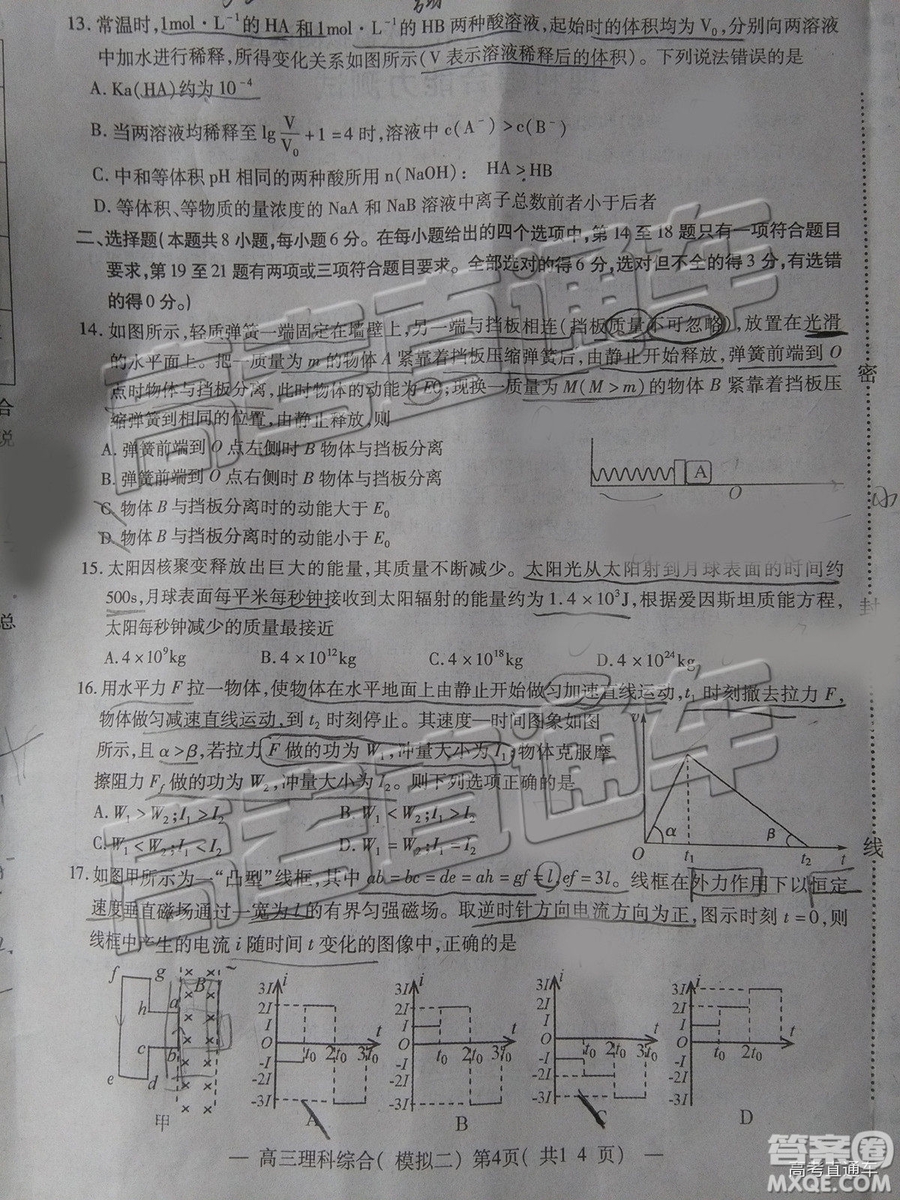 13. 常温时,1mol·L⁻¹的 HA 和 1mol·L⁻¹的 HB 两种酸溶液,起始时的体积均为 V₀,分别向两溶液
中加水进行稀释,所得变化关系如图所示(V 表示溶液稀释后的体积)。下列说法错误的是
A. Ka(HA)约为 10⁻⁴
B. 当两溶液均稀释至 lg V/V₀ +1=4 时,溶液中 c(A⁻)>c(B⁻)
C. 中和等体积 pH 相同的两种酸所用 n(NaOH): HA>HB
D. 等体积、等物质的量浓度的 NaA 和 NaB 溶液中离子总数前者小于后者
二、选择题(本题共 8 小题,每小题 6 分。在每小题给出的四个选项中,第 14 至 18 题只有一项符合题目
要求,第 19 至 21 题有两项或三项符合题目要求。全部选对的得 6 分,选对但不全的得 3 分,有选错
的得 0 分。)
14. 如图所示,轻质弹簧一端固定在墙壁上,另一端与挡板相连(挡板质量不可忽略),放置在光滑
的水平面上。把一质量为 m 的物体 A 紧靠着挡板压缩弹簧后,由静止开始释放,弹簧前端到 O
点时物体与挡板分离,此时物体的动能为 EO;现换一质量为 M(M>m)的物体 B 紧靠着挡板压
缩弹簧到相同的位置,由静止释放,则
A. 弹簧前端到 O 点左侧时 B 物体与挡板分离
B. 弹簧前端到 O 点右侧时 B 物体与挡板分离
C. 物体 B 与挡板分离时的动能大于 E₀
D. 物体 B 与挡板分离时的动能小于 E₀
A
O
15. 太阳因核聚变释放出巨大的能量,其质量不断减少。太阳光从太阳射到月球表面的时间约
500s,月球表面每平米每秒钟接收到太阳辐射的能量约为 1.4×10³J,根据爱因斯坦质能方程,
太阳每秒钟减少的质量最接近
A. 4×10⁹kg B. 4×10¹²kg C. 4×10¹⁸kg D. 4×10²⁴kg
16. 用水平力 F 拉一物体,使物体在水平地面上由静止开始做匀加速直线运动,t₁ 时刻撤去拉力 F,
物体做匀减速直线运动,到 t₂ 时刻停止。其速度—时间图象如图
所示,且 α>β,若拉力 F 做的功为 W₁,冲量大小为 I₁;物体克服摩
擦阻力 F_f 做的功为 W₂,冲量大小为 I₂。则下列选项正确的是
A. W₁>W₂;I₁>I₂ B. W₁<W₂;I₁>I₂
C. W₁<W₂;I₁<I₂ D. W₁=W₂;I₁=I₂
v
α β
O t₁ t₂ t
17. 如图甲所示为一“凸型”线框,其中 ab=bc=de=ah=gf=l,ef=3l。线框在外力作用下以恒定
速度垂直磁场通过一宽为 l 的有界匀强磁场。取逆时针方向电流方向为正,图示时刻 t=0,则
线框中产生的电流 i 随时间 t 变化的图像中,正确的是
f g h a B c b e d
甲
i 3I 2I I O -I -2I -3I t₀ 2t₀ 3t₀ t
A
i 3I 2I I O -I -2I -3I t₀ 2t₀ 3t₀ t
B
i 3I 2I I O -I -2I -3I t₀ 2t₀ 3t₀ t
C
i 3I 2I I O -I -2I -3I t₀ 2t₀ 3t₀ t
D
— 高三理科综合( 模拟二) 第4页( 共1 4 页) —
密
封
线
合
说
总
高考直通车
高考直通车
答案圈
高考直通车
MXQE.COM